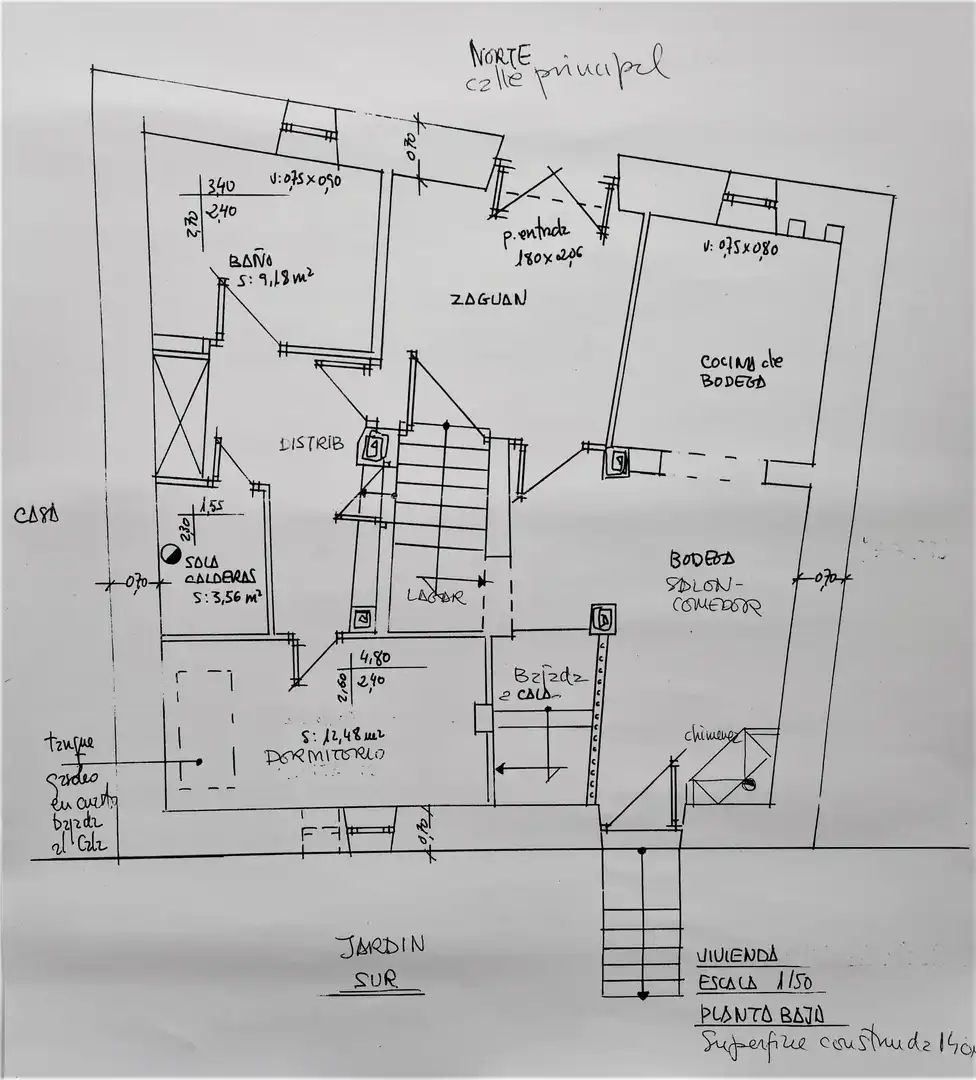 NORTE
calle principal
0,70
3,40
2,70
2,40
V: 0,75 x 0,90
BAÑO
S: 9,18 m²
p. entrada
180 x 2,06
ZAGUAN
V: 0,75 x 0,80
COCINA de
BODEGA
DISTRIB
CASA
1,55
2,30
SALA
CALDERAS
S: 3,56 m²
0,70
LAGAR
BODEGA
SALON-
COMEDOR
0,70
4,80
2,60
2,40
S: 12,48 m²
DORMITORIO
Bajada
a CALA
chimenea
tanque
gasoleo
en cuarto
bajada
al Cala
0,70
JARDIN
SUR
VIVIENDA
ESCALA 1/50
PLANTA BAJA
Superficie construida 140